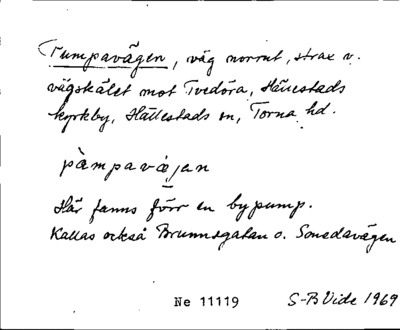 Pumpavägen, väg norrut, strax v.
vägskälet mot Tvedöra, Hällestads
kyrkby, Hällestads sn, Torna hd.
pàmpavæjan
Här fanns förr en bypump.
Kallas också Brunnsgatan o.
Ne 11119
S-B Vide 1969